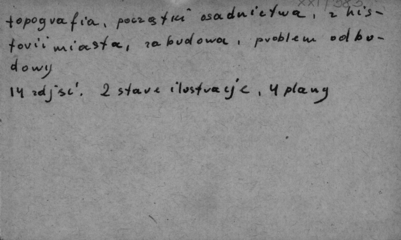 topografia, początki osadnictwa, z his-
torii miasta, zabudowa, problem odbu-
dowy
14 zdjęć. 2 stare ilustracje, 4 plany